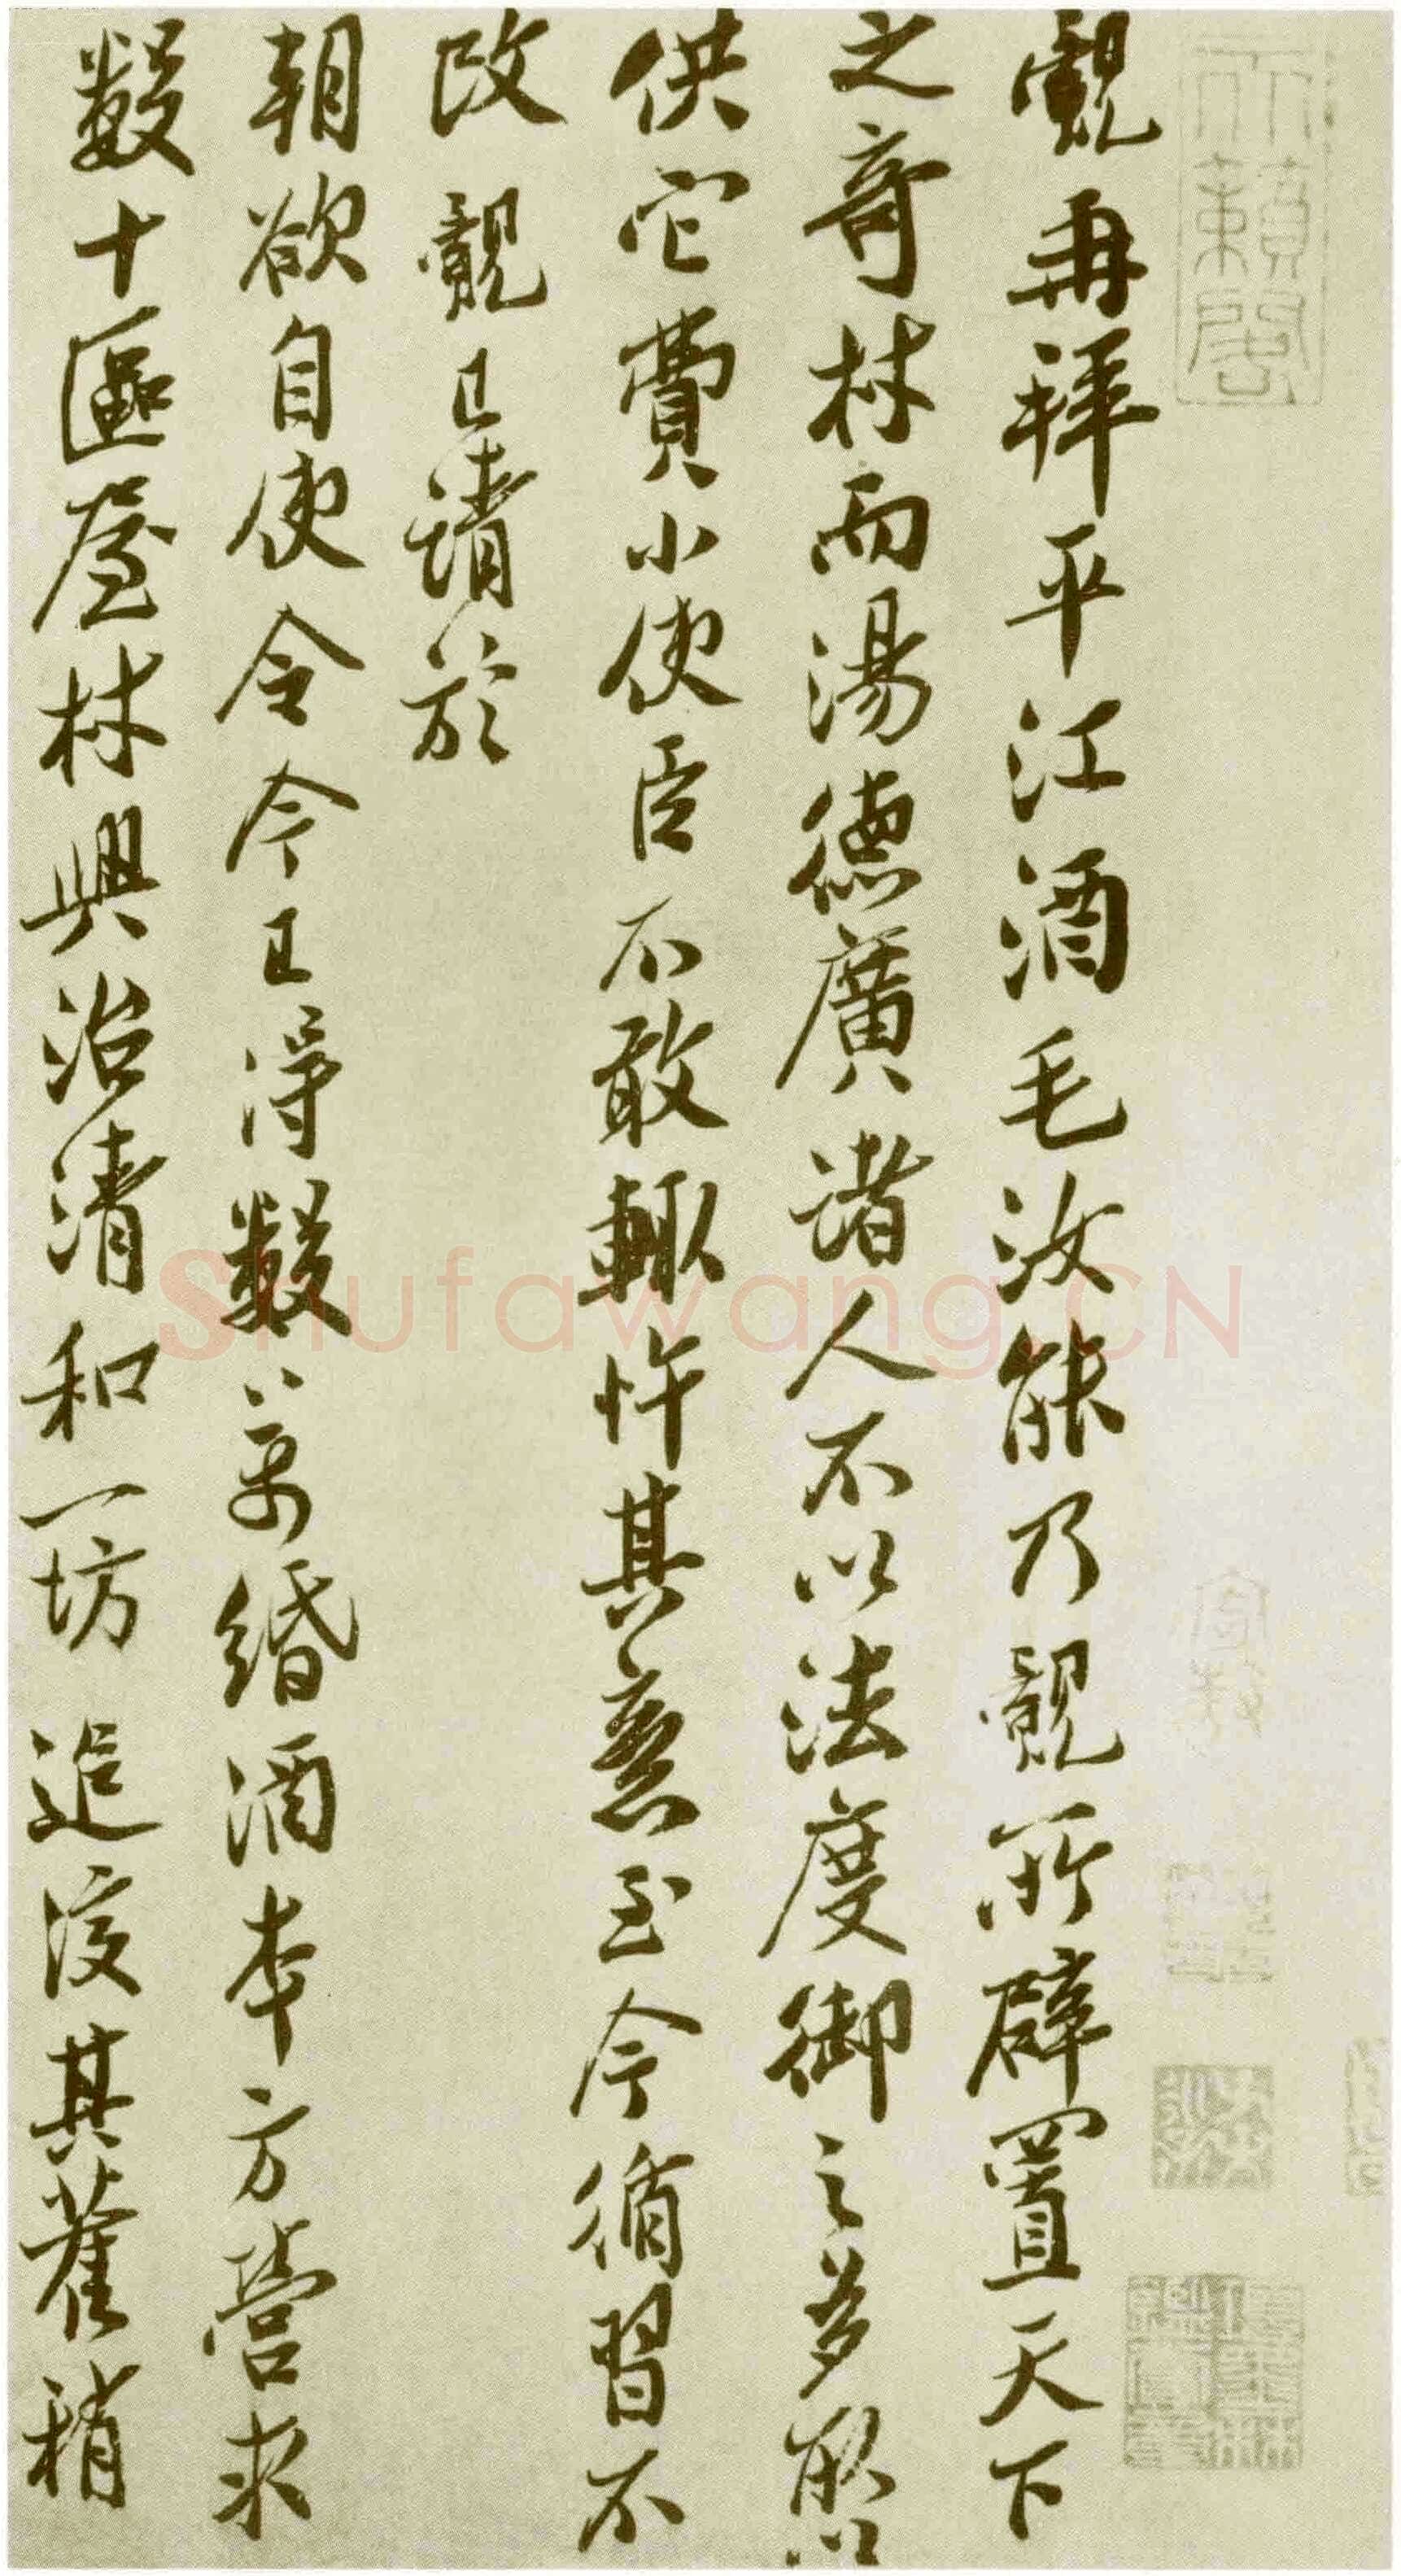 天籟閣
覿再拜平江酒毛汝能乃覿所辟置天下
之奇材而湯德廣諸人不以法度御之多取以
供它費小使臣不敢輒忤其意至今循習不
改覿已請於
朝欲自使令今已得數萬緡酒本方營求
數十區屋材興治清和一坊追復其舊稍
Shufawang.CN